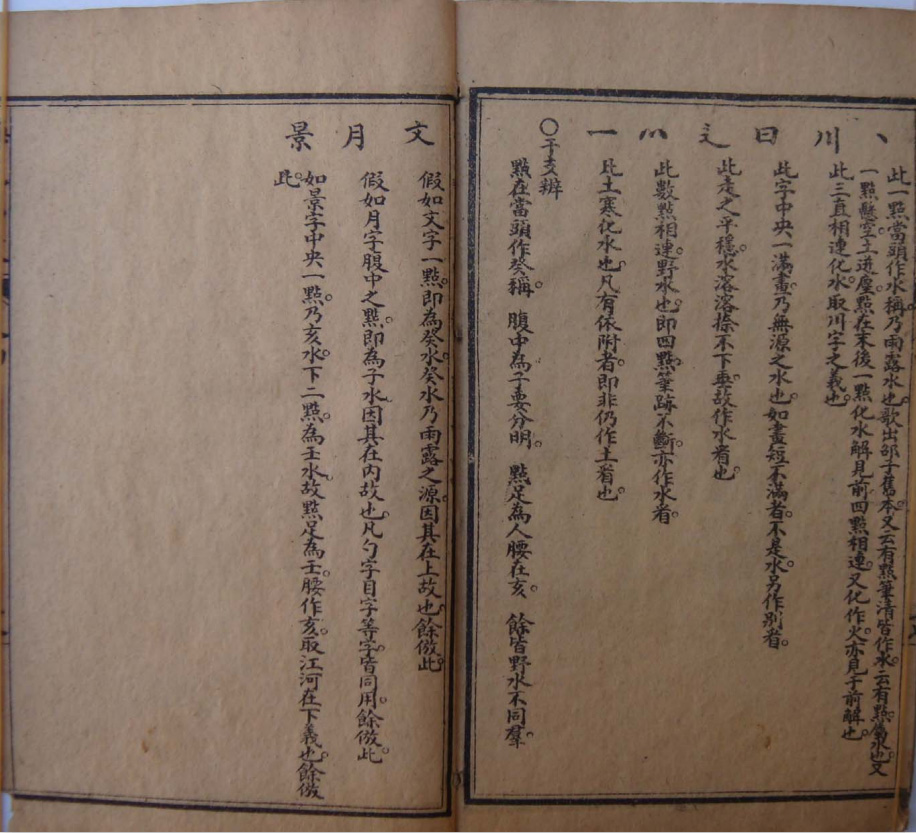 丶
此一點當頭作水稱乃雨露水也歌出邵子舊本又云有點筆清皆作水云有點屬水也又
一點懸空土迸塵點在末後一點化水解見前四點相連又化作火亦見于前解也
川
此三直相連化水取川字之義也
曰
此字中央一滿畫乃無源之水也如畫短不滿者不是水另作別看
辶
此走之平穩水溶溶捺不下垂故作水看也
此數點相連野水也即四點筆跡不斷亦作水看
一
此土寒化水也凡有依附者即非仍作土看也
〇干支辨
點在當頭作癸稱 腹中為子要分明 點足為人腰在亥 餘皆野水不同羣
文
假如文字一點即為癸水癸水乃雨露之源因其在上故也餘倣此
月
假如月字腹中之點即為子水因其在內故也凡勺字目字等字皆同用餘倣此
景
如景字中央一點乃亥水下二點為壬水故點足為壬腰作亥取江河在下義也餘倣
此